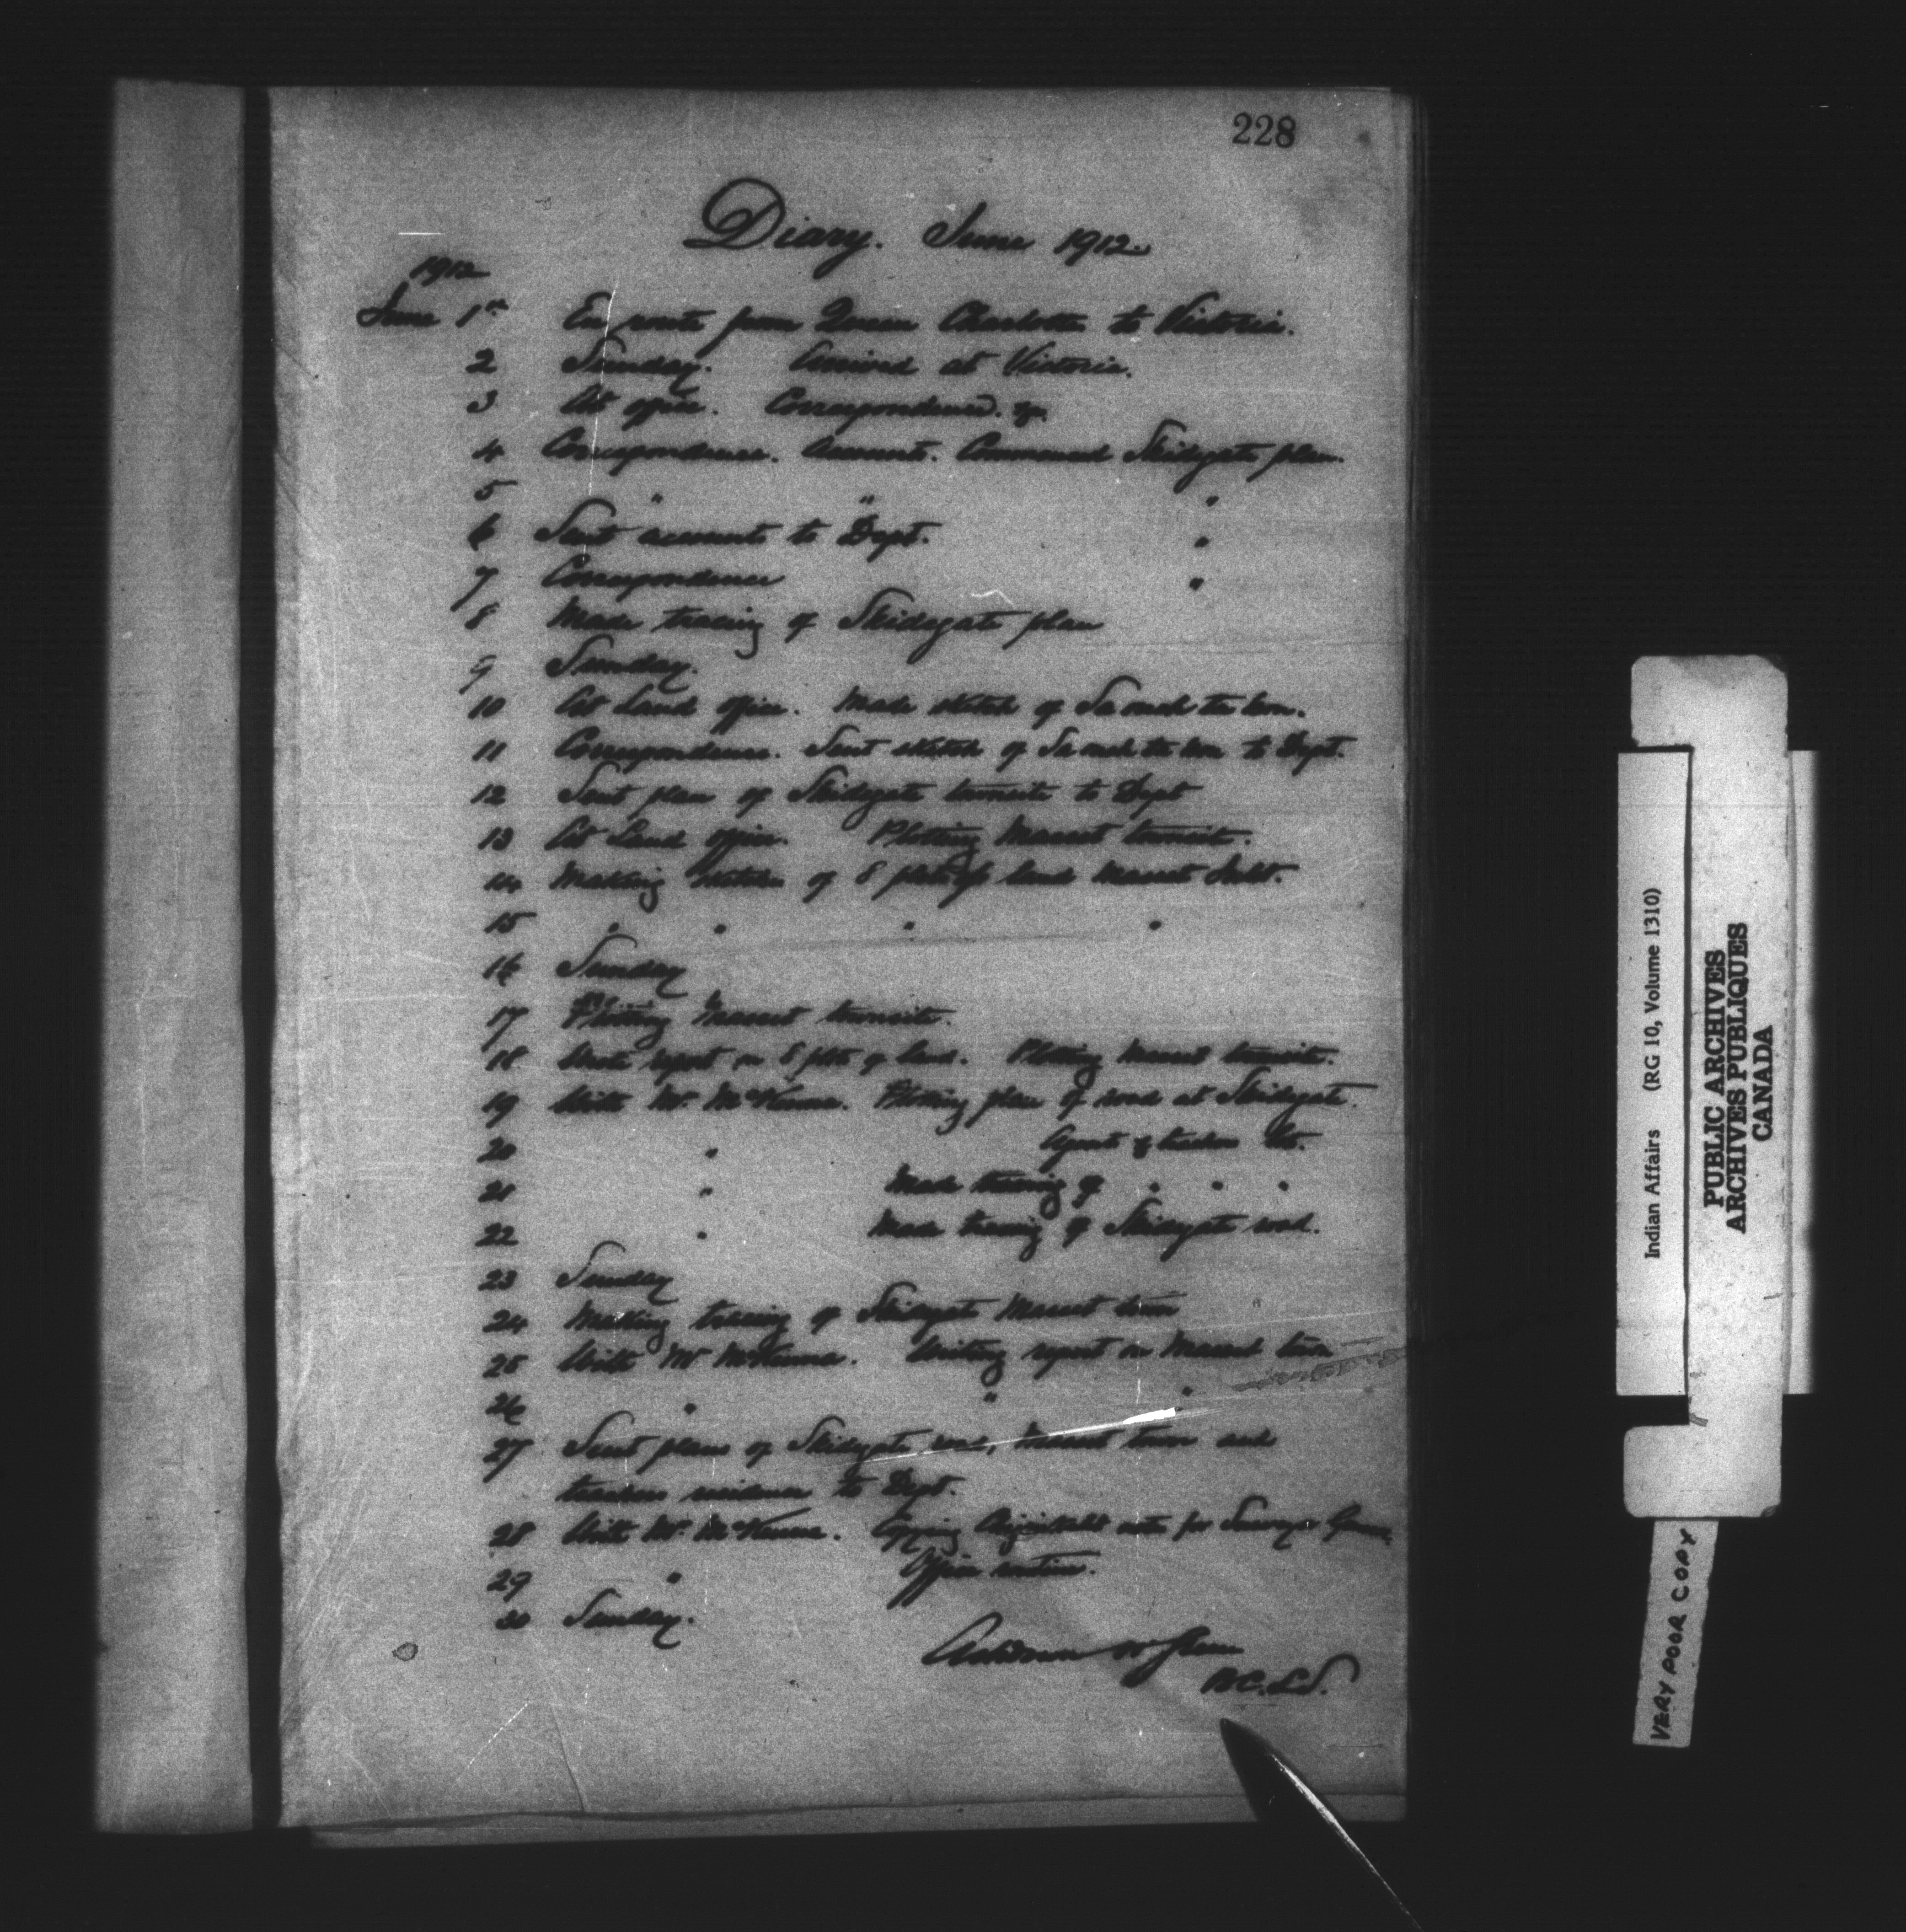 228
Diary. June 1912.
1912
June 1st En route from Queen Charlotte to Victoria.
2 Sunday. Arrived at Victoria.
3 At office. Correspondence. &c.
4 Correspondence. Accounts. Commenced Skidegate plan.
5 " " "
6 Sent accounts to Dept. "
7 Correspondence "
8 Made tracing of Skidegate plan
9 Sunday.
10 At Land office. Made sketch of
11 Correspondence. Sent sketch of to Dept.
12 Sent plan of Skidegate townsite to Dept
13 At Land office. Plotting Massett townsite.
14 Making sketches of 8 plots of land Massett Inlet.
15 " " " "
16 Sunday
17 Plotting Massett townsite.
18 Wrote report on 8 plots of land. Plotting Massett townsite.
19 With Mr. McKenna. Plotting plan of road at Skidegate.
20 " Agents & traders lots.
21 " Made tracing of " " "
22 " Made tracing of Skidegate road.
23 Sunday
24 Making tracing of Skidegate Massett town
25 With Mr McKenna. Writing report on Massett town
26 " " "
27 Sent plans of Skidegate road, Massett town and
traders residence to Dept.
28 With Mr. McKenna. Copying notes for Surveyor General
29 " Office routine.
30 Sunday.
Ashdown H Green
B.C.L.S.
Indian Affairs (RG 10, Volume 1310)
PUBLIC ARCHIVES
ARCHIVES PUBLIQUES
CANADA
VERY POOR COPY